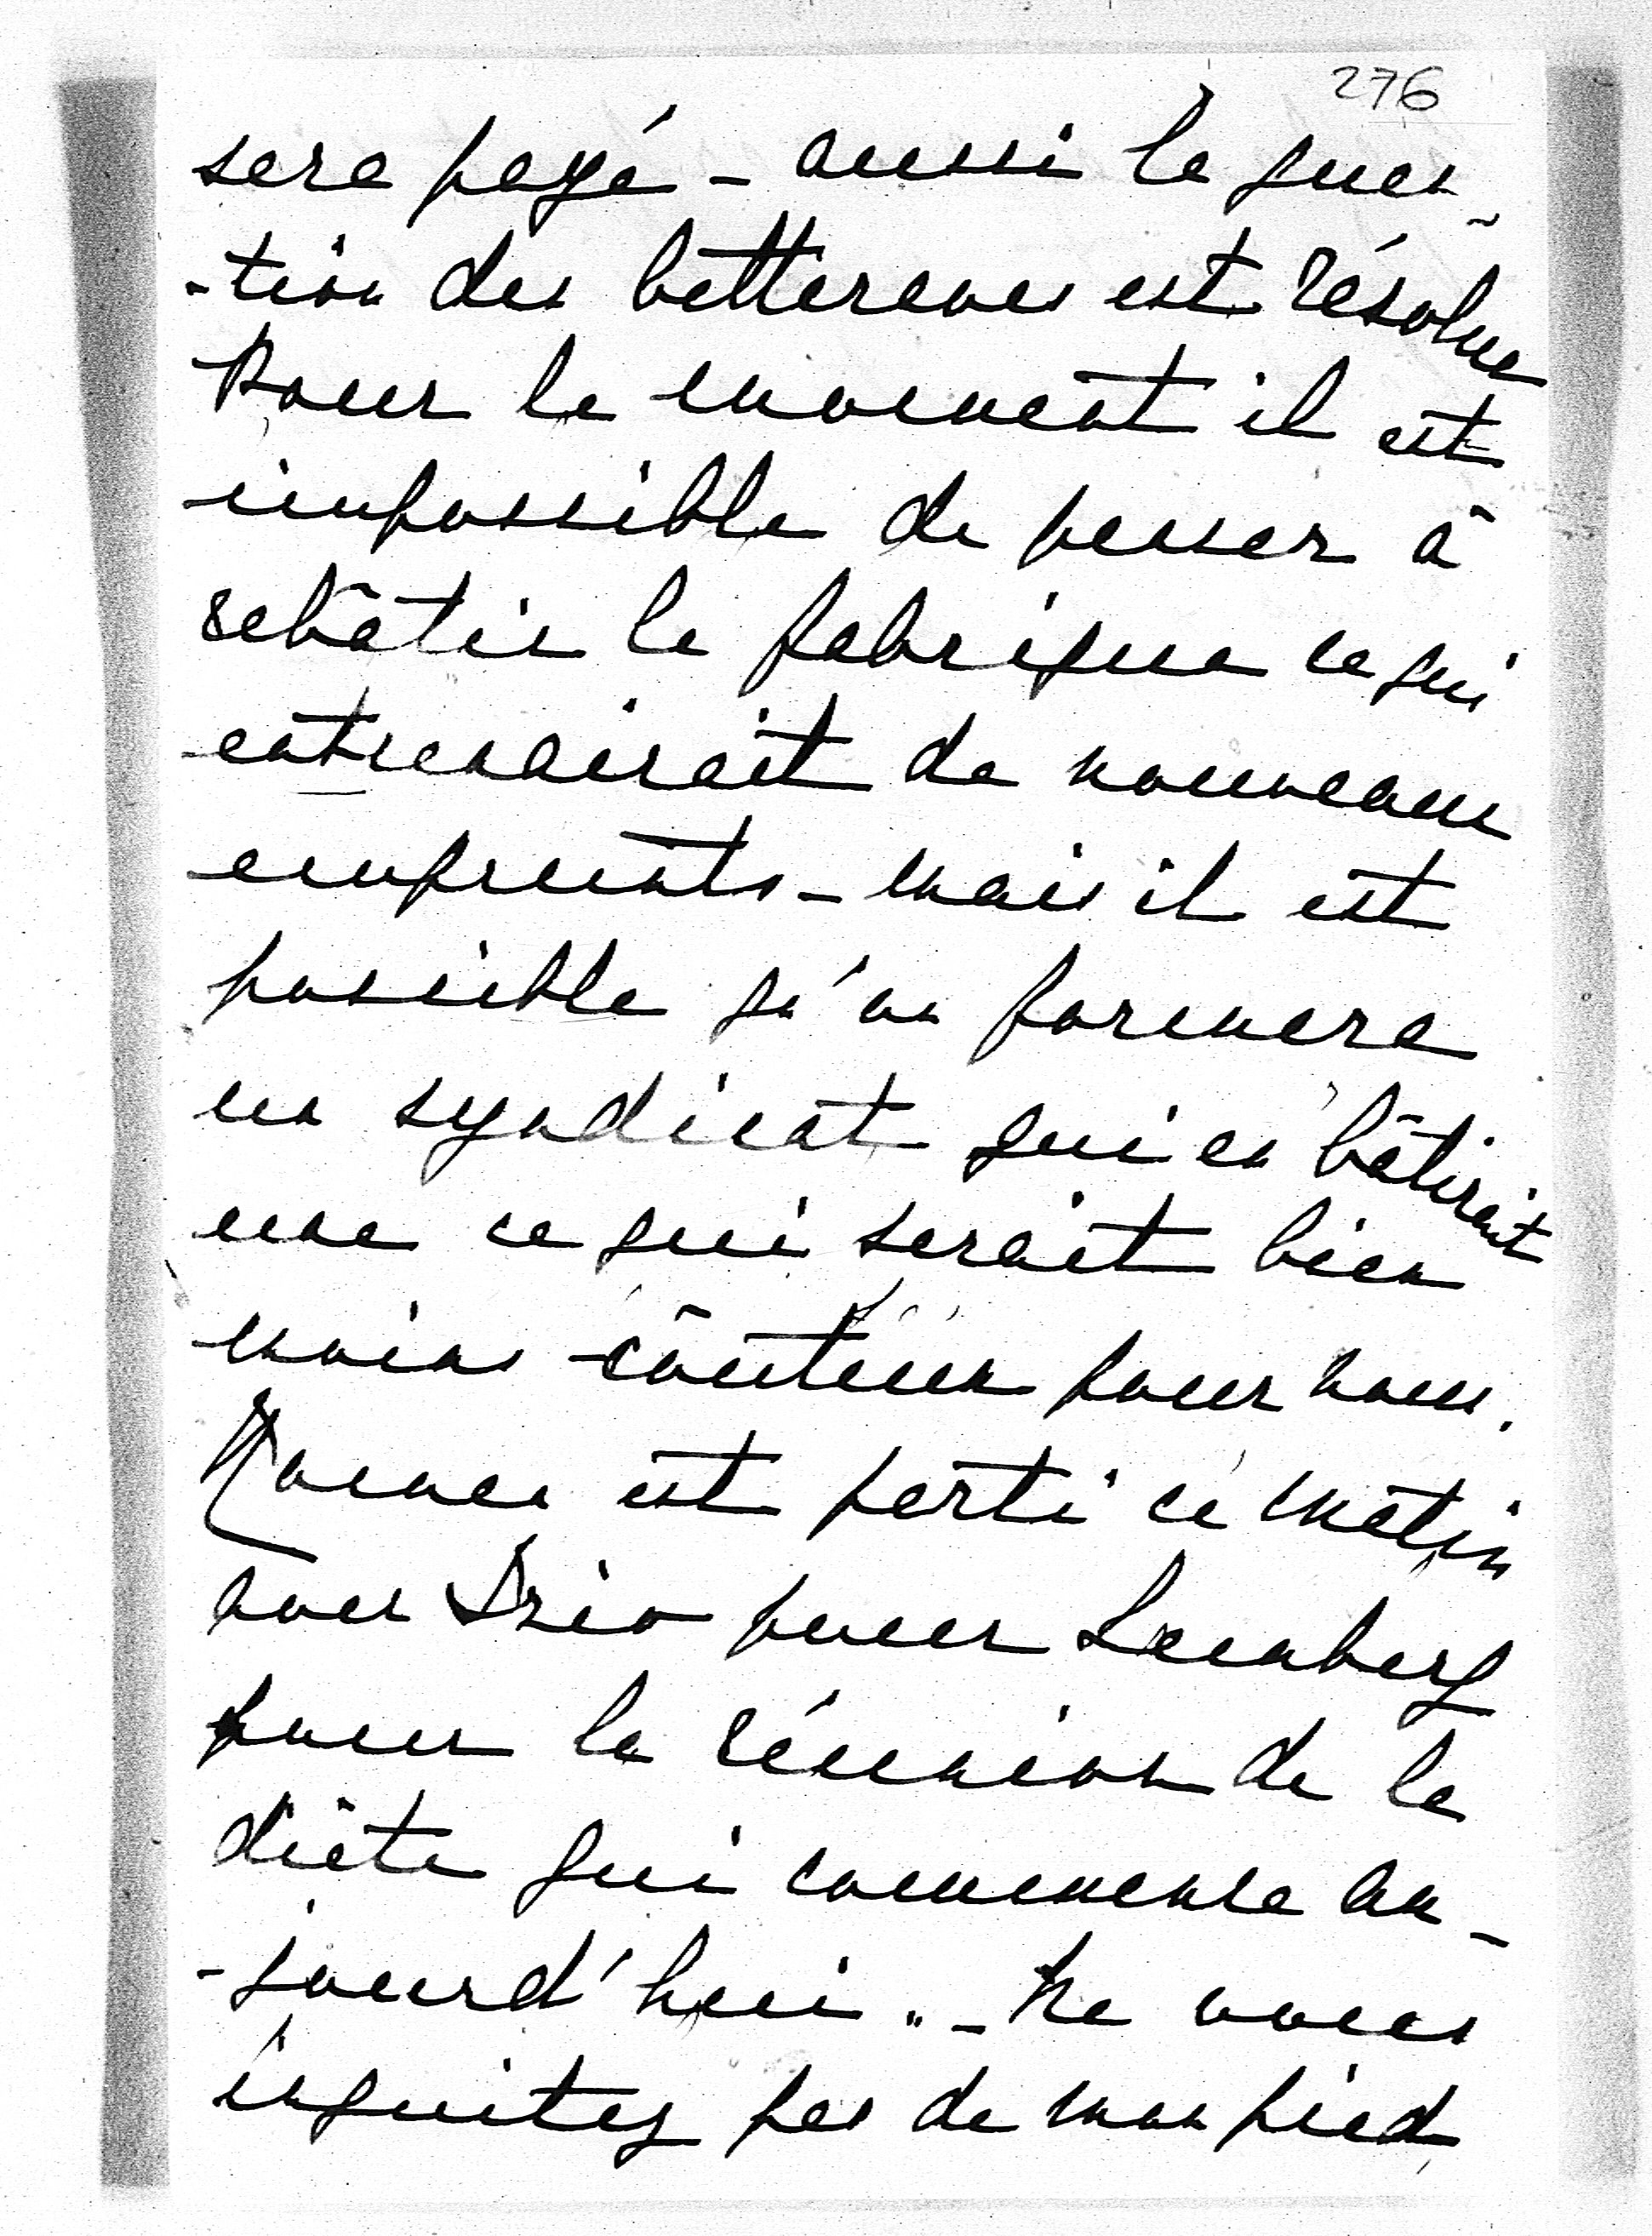 276
sera payé - aussi la ques-
-tion des betteraves est résolue
Pour le moment il est
impossible de penser à
rebâtir la fabrique ce qui
entrenairait de nouveaux
emprunts - mais il est
possible qu'on formera
un syndicat qui en bâtirait
une ce qui serait bien
moins coûteux pour nous.
est parti ce matin
avec pour Lemberg
pour la réunion de la
diète qui commence au-
-jourd'hui. - Ne vous
inquitez pas de mon pied